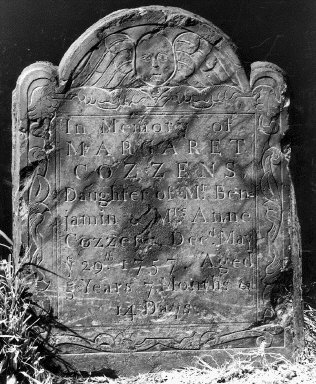 In Memory of
MARGARET
COZZENS
Daughter of Mr. Ben-
jamin & Mrs. Anne
Cozzens Decd. May
ye 29th. 1757 Aged
Years 7 Months &
14 Days.